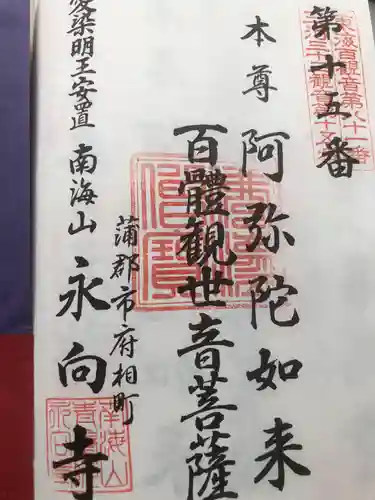 第十五番
本尊 阿弥陀如来
百體觀世音菩薩
蒲郡市府相町
愛染明王安置 南海山 永向寺